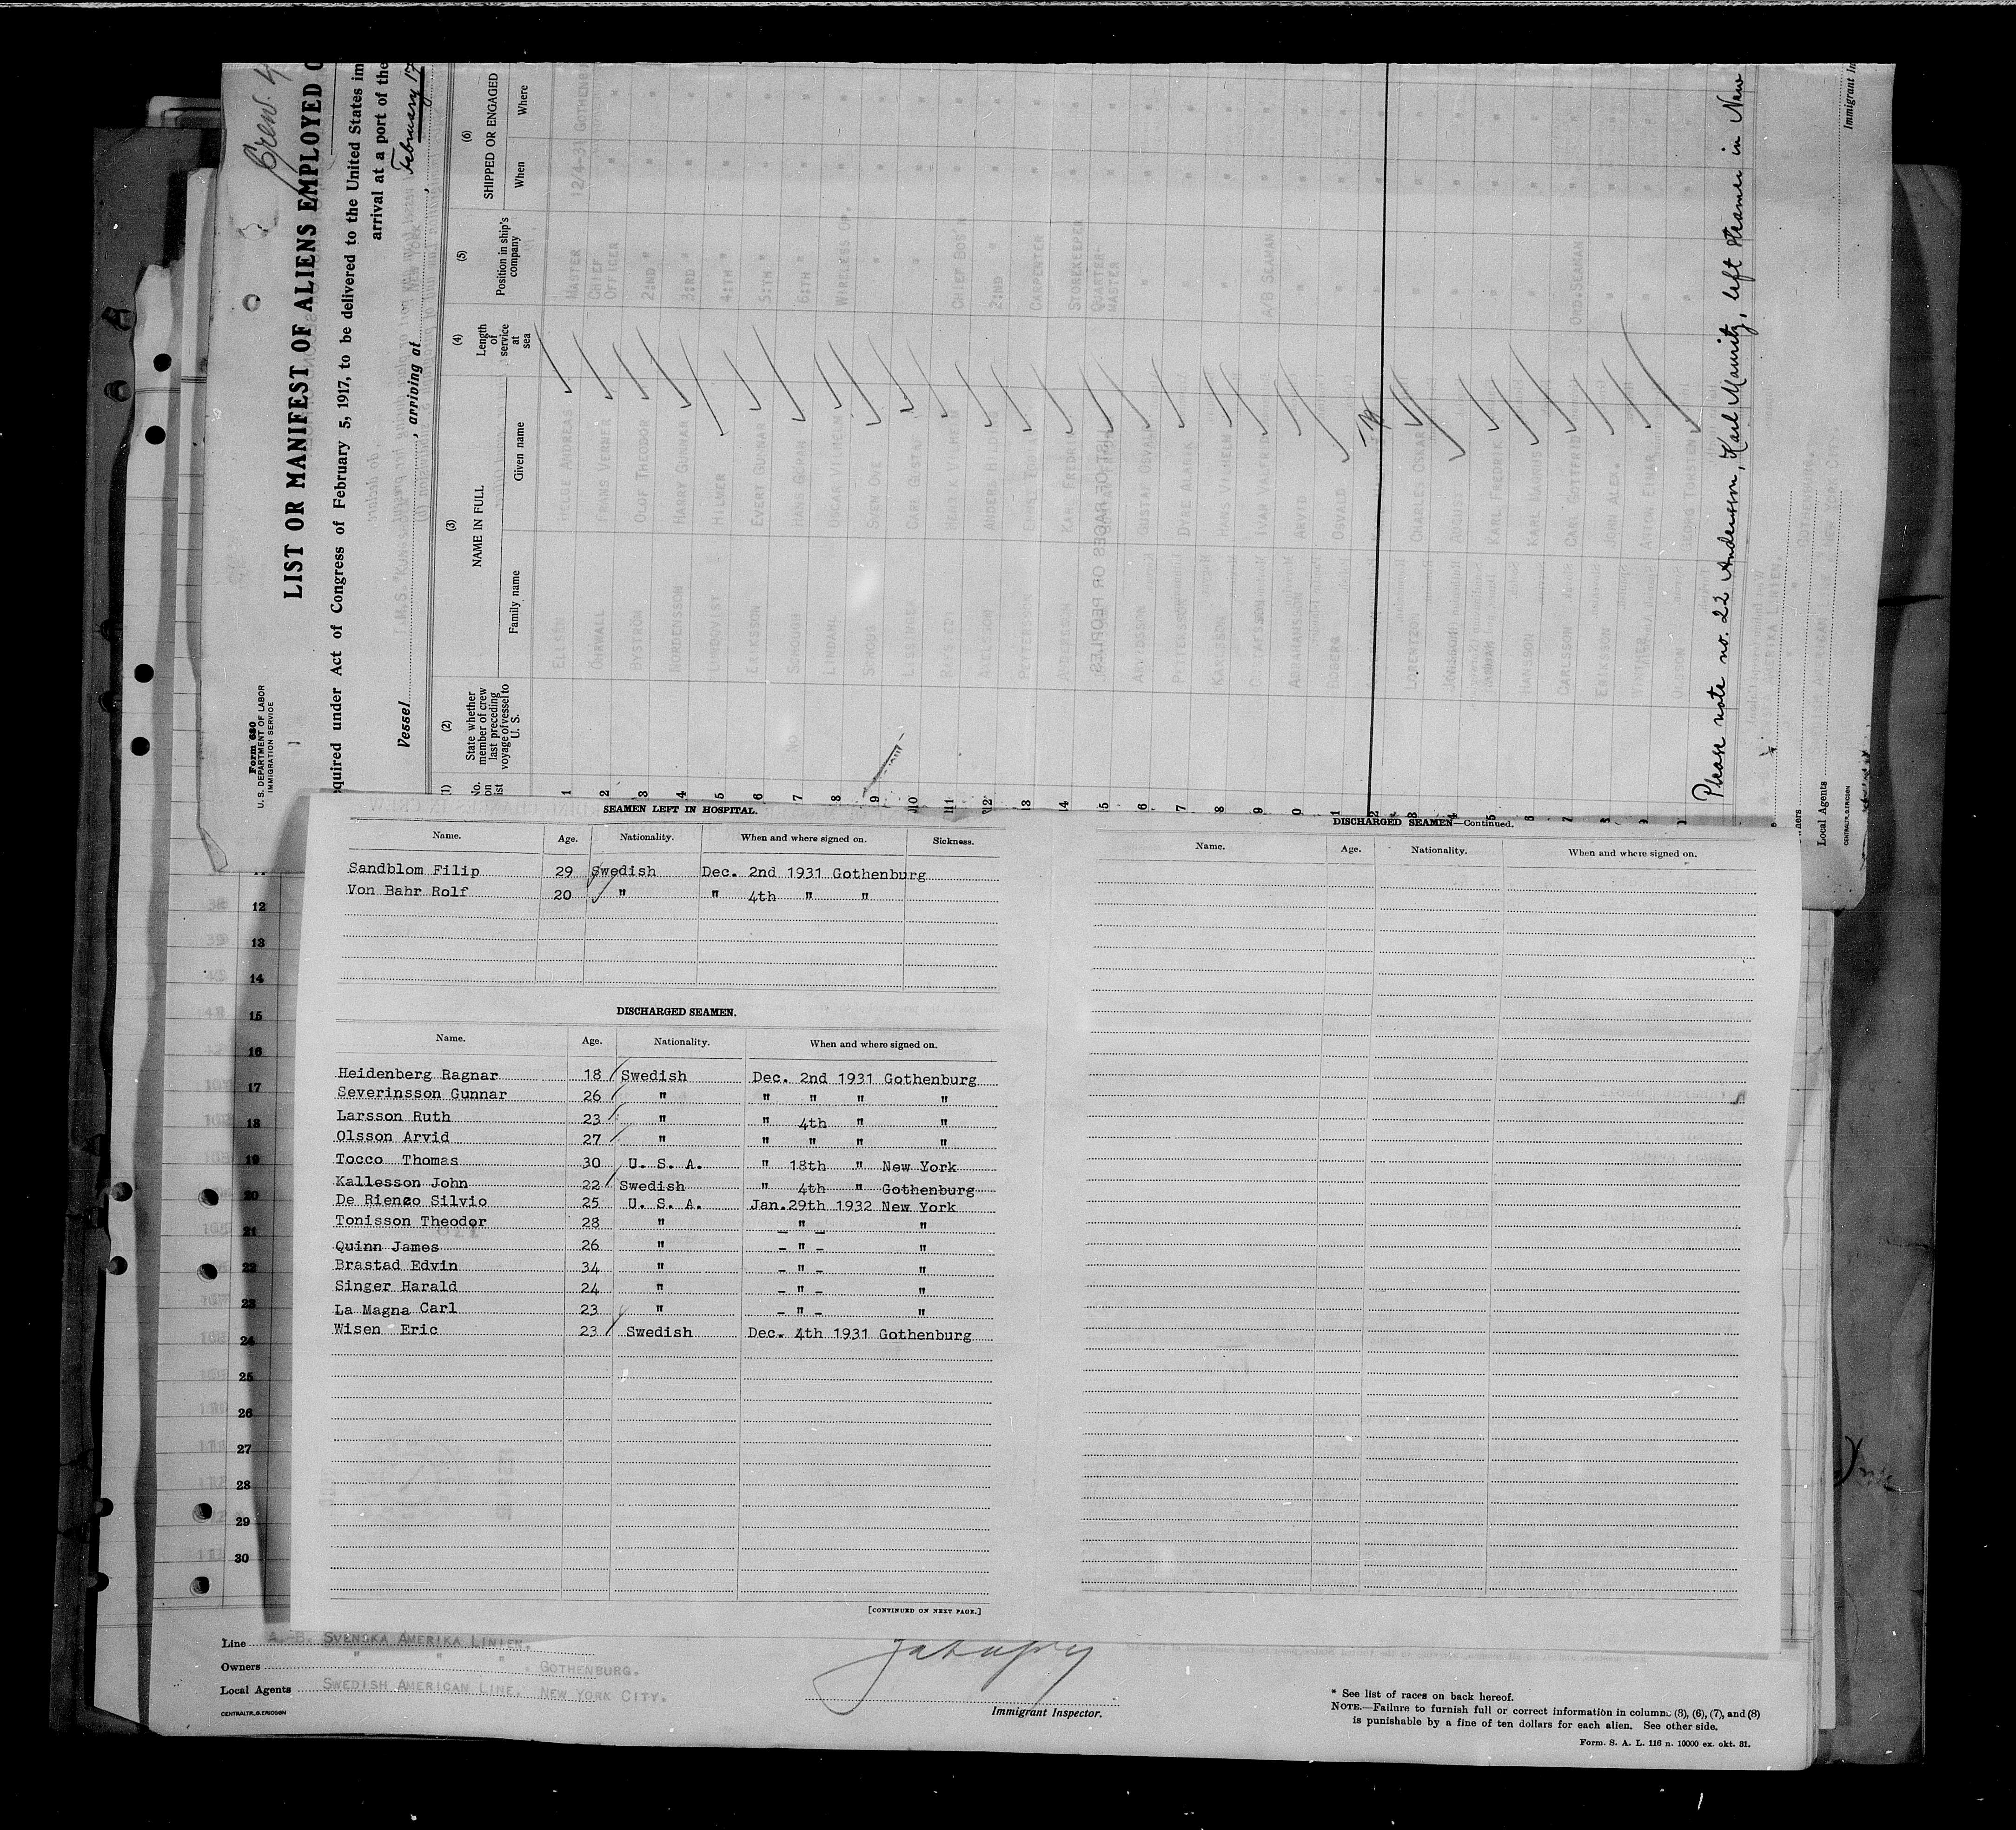 Crew. 4
Form 680
U. S. DEPARTMENT OF LABOR
IMMIGRATION SERVICE
LIST OR MANIFEST OF ALIENS EMPLOYED O
equired under Act of Congress of February 5, 1917, to be delivered to the United States im
arrival at a port of the
Vessel T.M.S. , arriving at NEW YORK , February 17
(1) (2) (3) (4) (5) (6)
State whether member of crew last preceding voyage of vessel to U. S.
NAME IN FULL
Family name Given name
Length of service at sea
Position in ship's company
SHIPPED OR ENGAGED
When Where
1 HELGE ANDREAS MASTER 12/4-31 GOTHENB
2 OHRWALL FRANS VERNER CHIEF OFFICER " "
3 BYSTRÖM OLOF THEODOR 2:ND " " "
4 NORDENSSON HARRY GUNNAR 3:RD " " "
5 LINDQVIST HILMER 4:TH " " "
6 ERIKSSON EVERT GUNNAR 5:TH " " "
7 No HANS GÖRAN 6:TH " " "
8 LINDAHL OSCAR VILHELM WIRELESS OP. " "
9 SVEN OVE " " "
10 CARL GUSTAF " " "
11 CHIEF BOS'N " "
12 AXELSSON ANDERS 2:ND " " "
13 CARPENTER " "
14 ANDERSSON KARL FREDRIK STOREKEEPER " "
5 QUARTER-MASTER " "
6 ARVIDSSON GUSTAF OSVALD " " "
7 DYRE ALARIK " " "
8 KARLSSON HANS VILHELM " " "
9 GUSTAFSSON IVAR VALFRID A/B SEAMAN " "
0 ABRAHAMSSON ARVID " " "
1 BOBERG OSVALD " " "
LORENTZON CHARLES OSKAR " " "
KARL FREDRIK " " "
HANSSON KARL MAGNUS " " "
CARLSSON CARL GOTTFRID ORD.SEAMAN " "
ERIKSSON JOHN ALEX. " " "
ANTON EINAR " " "
OLSSON GEORG TORSTEN " " "
LIST OF RACES OR PEOPLES
Please note no. 22 Andersson, Karl Mauritz, left steamer in New
Local Agents
CENTRALTR., G. ERICSON
Immigrant In
SEAMEN LEFT IN HOSPITAL.
Name. Age. Nationality. When and where signed on. Sickness.
Sandblom Filip 29 Swedish Dec. 2nd 1931 Gothenburg
Von Bahr Rolf 20 " " 4th " "
DISCHARGED SEAMEN.
Name. Age. Nationality. When and where signed on.
Heidenberg Ragnar 18 Swedish Dec. 2nd 1931 Gothenburg
Severinsson Gunnar 26 " " " " "
Larsson Ruth 23 " " 4th " "
Olsson Arvid 27 " " " " "
Tocco Thomas 30 U. S. A. " 18th " New York
Kallesson John 22 Swedish " 4th " Gothenburg
De Rienzo Silvio 25 U. S. A. Jan.29th 1932 New York
Tonisson Theodor 28 " _ " _ "
Quinn James 26 " - " - "
Brastad Edvin 34 " - " - "
Singer Harald 24 " - " - "
La Magna Carl 23 " - " - "
Wisen Eric 23 Swedish Dec. 4th 1931 Gothenburg
[CONTINUED ON NEXT PAGE.]
DISCHARGED SEAMEN—Continued.
Name. Age. Nationality. When and where signed on.
12
13
14
15
16
17
18
19
20
21
22
23
24
25
26
27
28
29
30
Line A.-B. SVENSKA AMERIKA LINIEN.
Owners " " " , GOTHENBURG.
Local Agents SWEDISH AMERICAN LINE, NEW YORK CITY.
CENTRALTR., G. ERICSON
Immigrant Inspector.
* See list of races on back hereof.
NOTE.—Failure to furnish full or correct information in columns (3), (6), (7), and (8)
is punishable by a fine of ten dollars for each alien. See other side.
Form. S. A. L. 116 n. 10000 ex. okt. 31.